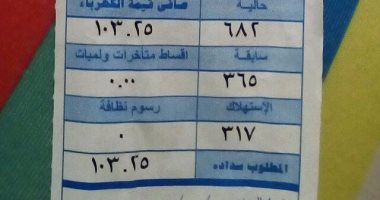 حالية صافى قيمة الكهرباء
٦٨٢ ١٠٣.٢٥
سابقة اقساط متأخرات ولمبات
٣٦٥ ٠.٠٠
الإستهلاك رسوم نظافة
٣١٧ ٠
المطلوب سداده ١٠٣.٢٥